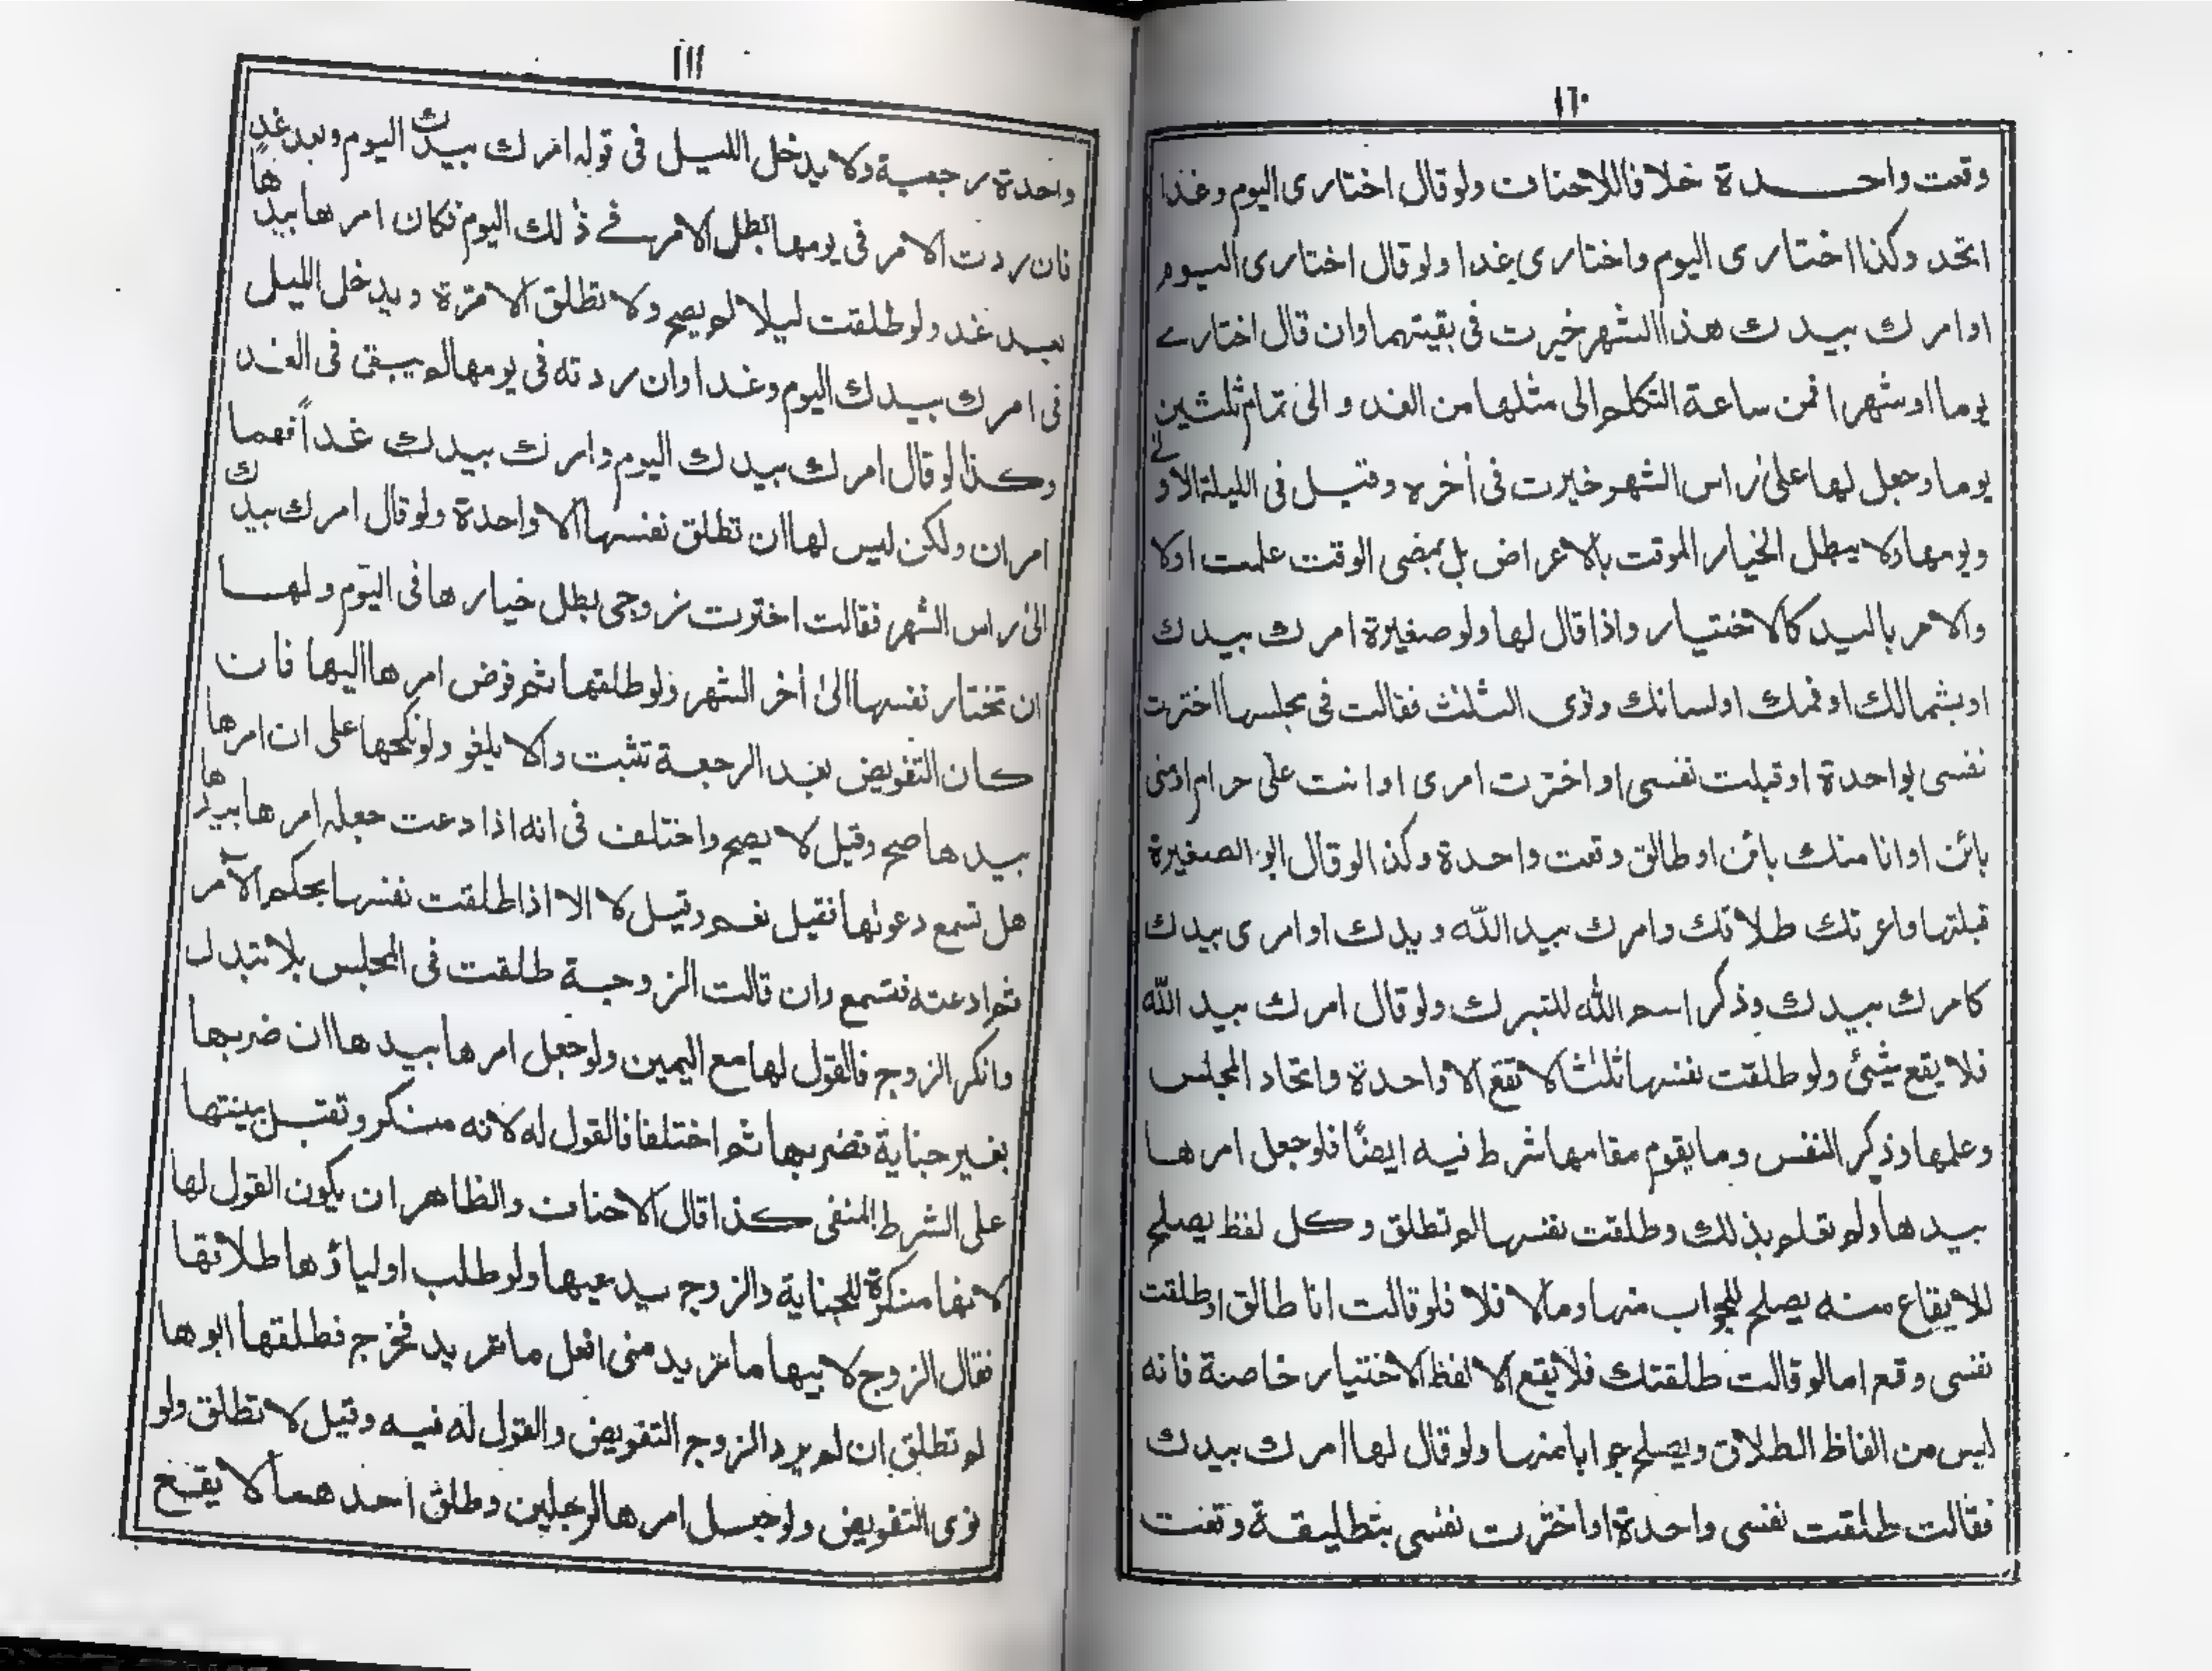 ١٦٠
وقعت واحدة خلافا للاحناف ولو قال اختارى اليوم وغدا
اتحد وكذا اختارى اليوم واختارى غدا ولو قال اختارى اليوم
او امرك بيدك هذا الشهر خيرت فى بقيتهما وان قال اختارے
يوما او شهرا فمن ساعة التكلم الى مثلها من الغد و الى تمام ثلثين
يوما وجعل لها على راس الشهر خيرت فى أخره وقيل فى الليلة الاولے
ويومها ولا يبطل الخيار الموقت بالاعراض بل بمضى الوقت علمت اولا
والامر باليد كالاختيار واذا قال لها ولو صغيرة امرك بيدك
او بشمالك او فمك او لسانك ونوى الثلث فقالت فى مجلسها اخترت
نفسى بواحدة او قبلت نفسى او اخترت امرى او انت على حرام اومنى
بائن او انا منك بائن او طالق وقعت واحدة وكذا لو قال ابو الصغيرة
قبلتها واعرتك طلاقك وامرك بيد الله ويدك او امرى بيدك
كامرك بيدك وذكر اسم الله للتبرك ولو قال امرك بيد الله
فلا يقع شيئ ولو طلقت نفسها ثلثا لا تقع الا واحدة واتحاد المجلس
وعلمها وذكر النفس وما يقوم مقامها شرط فيه ايضًا فلو جعل امرها
بيدها ولم تعلم بذلك وطلقت نفسها لم تطلق وكل لفظ يصلح
للايقاع منه يصلح للجواب منها ومالا فلا فلو قالت انا طالق اوطلقت
نفسى وقع امالو قالت طلقتك فلا يقع الا لفظ الاختيار خاصة فانه
ليس من الفاظ الطلاق ويصلح جوابا منها ولو قال لها امرك بيدك
فقالت طلقت نفسى واحدة او اخترت نفسى بتطليقة وقعت
١١١
واحدة رجعية ولا يدخل الليل فى قوله امرك بيدك اليوم وبعد غدٍ
فان ردت الامر فى يومها بطل الامر فے ذلك اليوم فكان امرها بيدها
بعد غد ولو طلقت ليلا لم يصح ولا تطلق الا مرة ويدخل الليل
فى امرك بيدك اليوم وغدا وان ردته فى يومها لم يبقى فى الغد
وكذا لو قال امرك بيدك اليوم وامرك بيدك غداً فهما
امران ولكن ليس لها ان تطلق نفسها الا واحدة ولو قال امرك بيدك
الى راس الشهر فقالت اخترت زوجى بطل خيارها فى اليوم ولها
ان تختار نفسها الى أخر الشهر ولو طلقها ثم فوض امرها اليها فان
كان التفويض بعد الرجعة تثبت والا يلغو ولو نكحها على ان امرها
بيدها صح وقيل لا يصح واختلف فى انه اذا دعت جعله امرها بيدها
هل تسمع دعوٰىها فقيل نعم وقيل لا الا اذا طلقت نفسها بحكم الآمر
ثم ادعته فتسمع وان قالت الزوجة طلقت فى المجلس بلا تبدل
وانكر الزوج فالقول لها مع اليمين ولو جعل امرها بيدها ان ضربها
بغير جناية فضربها ثم اختلفا فالقول له لانه منكر وتقبل بينتها
على الشرط المنفى كذا قال الاحناف والظاهر ان يكون القول لها
لانها منكرة للجناية والزوج يدعيها ولو طلب اولياؤها طلاقها
فقال الزوج لابيها ما تريد منى افعل ما تريد فخرج فطلقها ابوها
لم تطلق ان لم يرد الزوج التفويض والقول له فيه وقيل لا تطلق ولو
نوى التفويض ولو جعل امرها لرجلين وطلق احدهما لا يقع